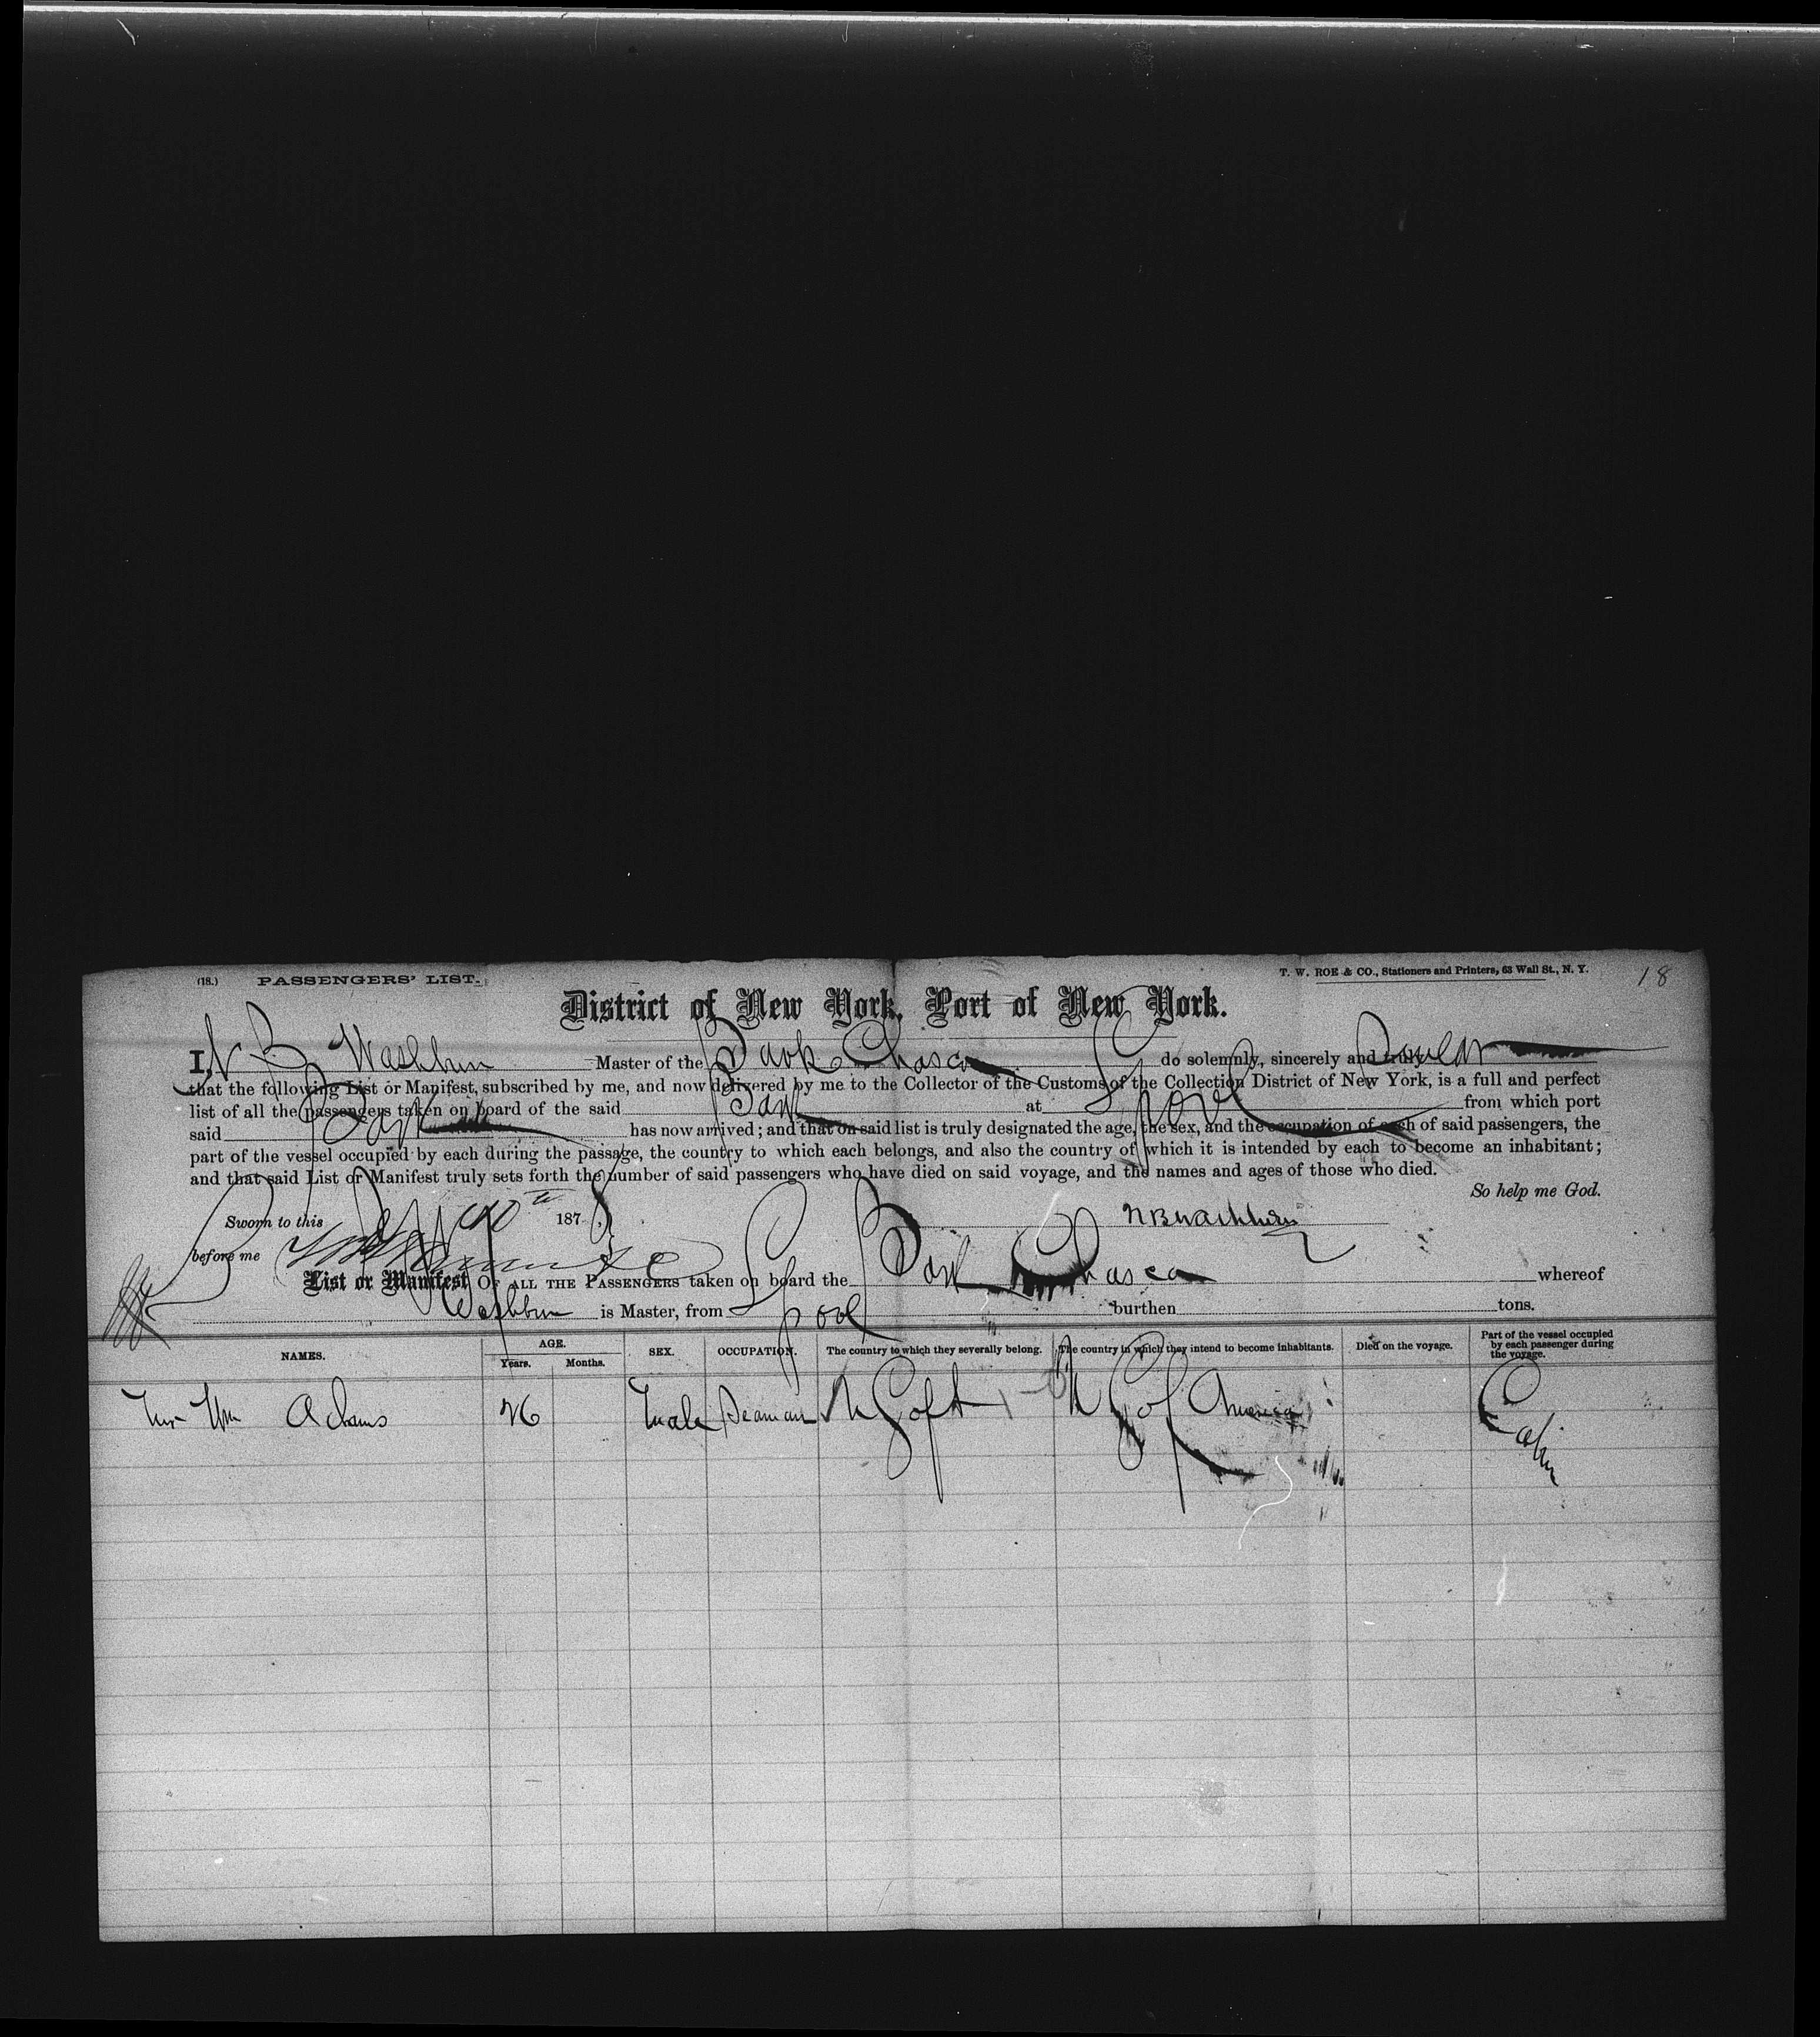 (18.) PASSENGERS' LIST. T. W. ROE & CO., Stationers and Printers, 63 Wall St., N. Y. 18
District of New York, Port of New York.
I, N B Washburn Master of the Bark Chasca do solemnly, sincerely and truly Swear
that the following List or Manifest, subscribed by me, and now delivered by me to the Collector of the Customs of the Collection District of New York, is a full and perfect
list of all the passengers taken on board of the said Bark at L'pool from which port
said Bark has now arrived; and that on said list is truly designated the age, the sex, and the occupation of each of said passengers, the
part of the vessel occupied by each during the passage, the country to which each belongs, and also the country of which it is intended by each to become an inhabitant;
and that said List or Manifest truly sets forth the number of said passengers who have died on said voyage, and the names and ages of those who died.
So help me God.
Sworn to this 187 8 N B Washburn
before me
List or Manifest OF ALL THE PASSENGERS taken on board the Bark Chasca whereof
Washburn is Master, from L'pool burthen tons.
NAMES. AGE. Years. Months. SEX. OCCUPATION. The country to which they severally belong. The country in which they intend to become inhabitants. Died on the voyage. Part of the vessel occupied by each passenger during the voyage.
Mr Wm Adams 26 Male Seaman of America Cabin